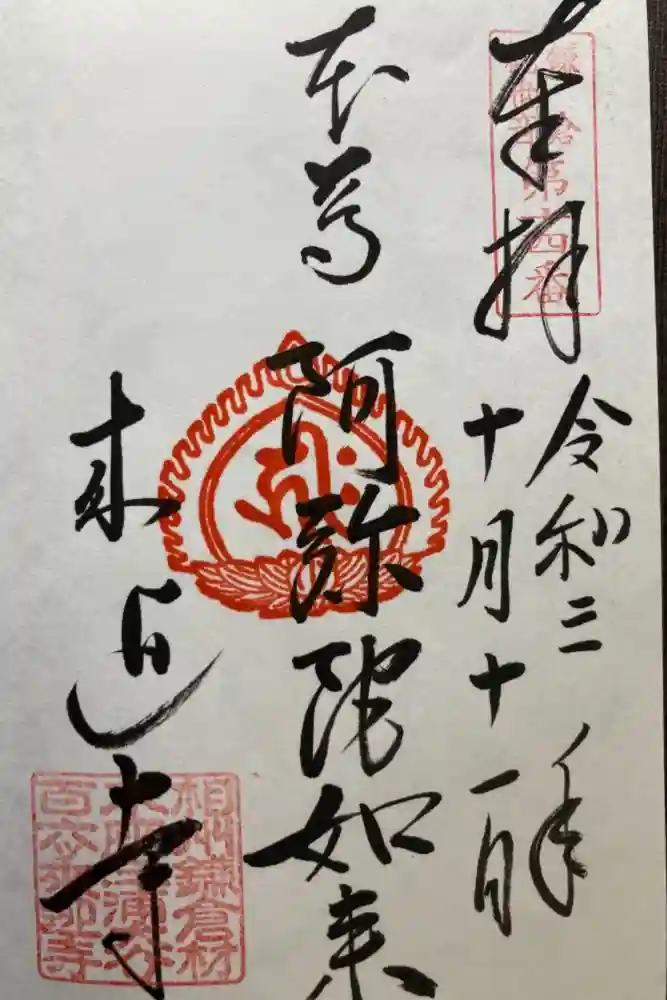 奉拝
鎌倉
第十四番
令和三年
十月十一日
本尊 阿弥陀如来
来迎寺
相州鎌倉材